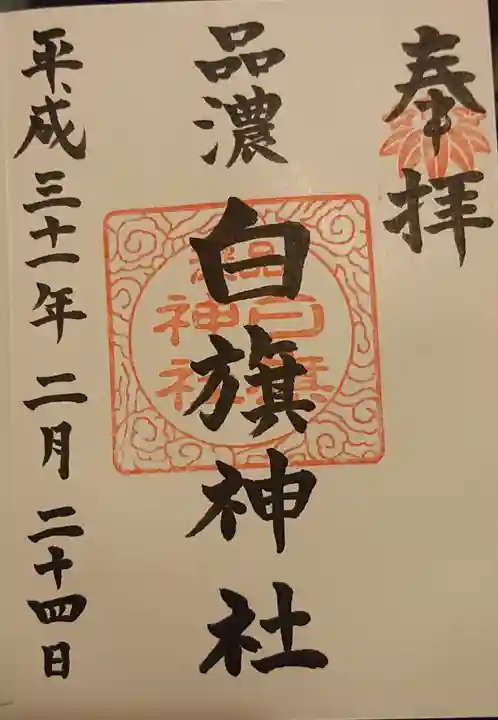 奉拝
品濃
白旗神社
品濃
白旗
神社
平成三十一年二月二十四日